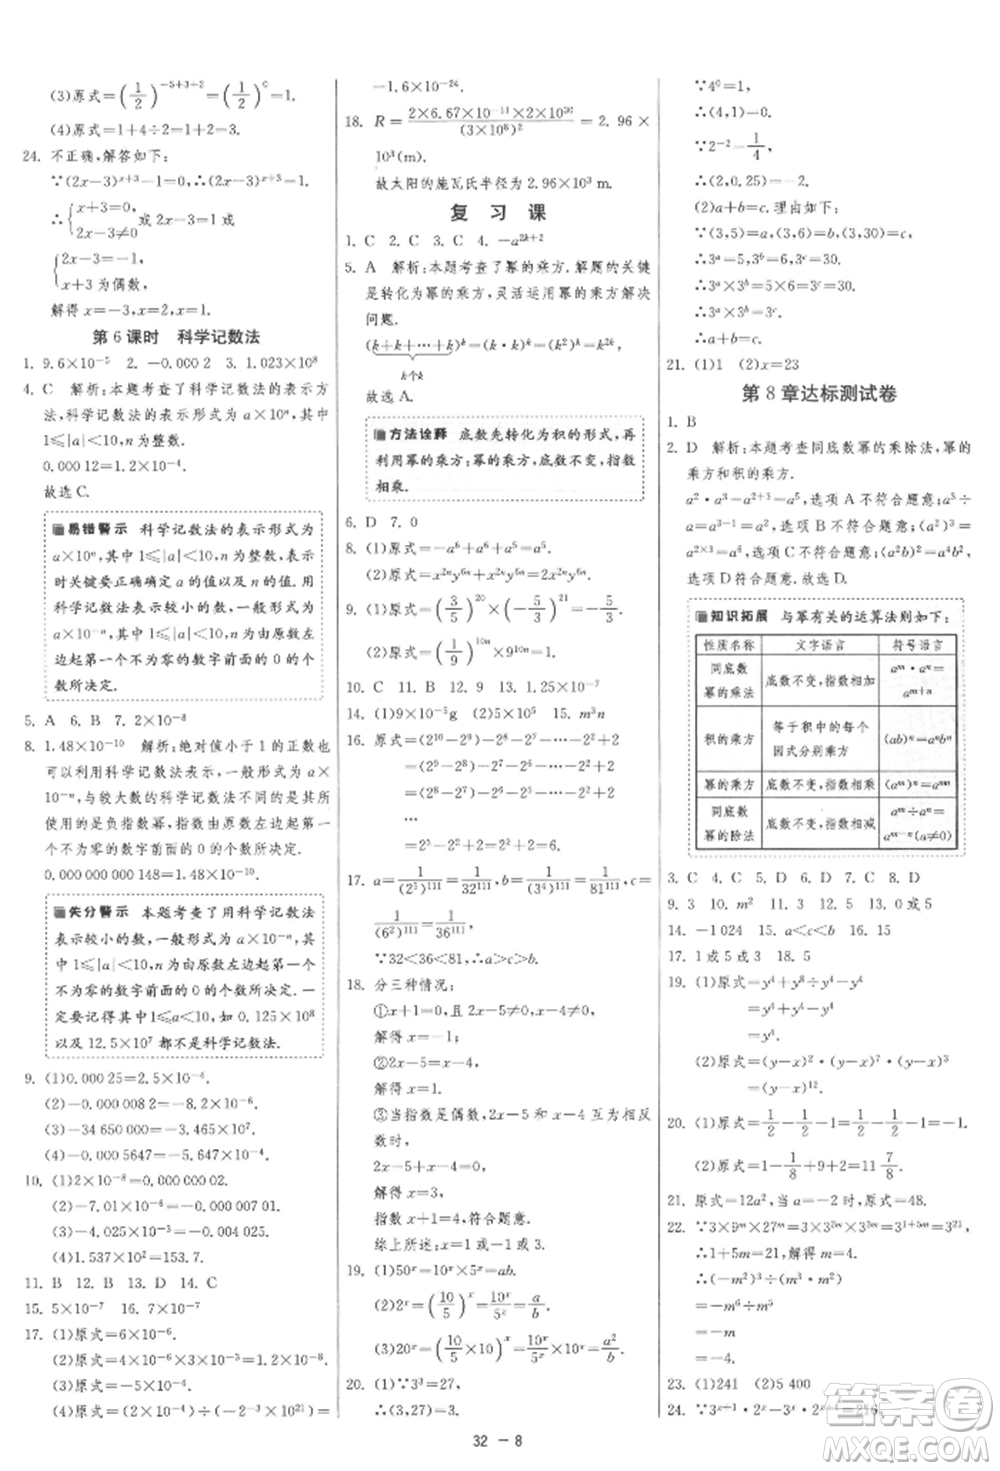 (3)原式=(1/2)^{-5+3+2}=(1/2)^0=1.
(4)原式=1+4÷2=1+2=3.
24. 不正确,解答如下:
∵(2x-3)^{x+3}-1=0,∴(2x-3)^{x+3}=1,
∴{x+3=0, 2x-3≠0 或2x-3=1或
{2x-3=-1, x+3为偶数,
解得x=-3,x=2,x=1.
第6课时 科学记数法
1. 9.6×10^{-5} 2. -0.000 2 3. 1.023×10^8
4. C 解析:本题考查了科学记数法的表示方
法,科学记数法的表示形式为a×10^n,其中
1≤|a|<10,n为整数.
0.000 12=1.2×10^{-4}.
故选C.
易错警示 科学记数法的表示形式为
a×10^n,其中1≤|a|<10,n为整数,表示
时关键要正确确定a的值以及n的值.用
科学记数法表示较小的数,一般形式为
a×10^{-n},其中1≤|a|<10,n由原数左
边起第一个不为零的数字前面的0的个
数所决定.
5. A 6. B 7. 2×10^{-8}
8. 1.48×10^{-10} 解析:绝对值小于1的正数也
可以利用科学记数法表示,一般形式为a×
10^{-n},与较大数的科学记数法不同的是其所
使用的是负指数幂,指数由原数左边起第一
个不为零的数字前面的0的个数所决定.
0.000 000 000 148=1.48×10^{-10}.
失分警示 本题考查了用科学记数法
表示较小的数,一般形式为a×10^{-n},其
中1≤|a|<10,n为由原数左边起第一个
不为零的数字前面的0的个数所决定.一
定要记住a的范围,如0.125×10^{-6}
以及12.5×10^7都不是科学记数法.
9. (1)0.000 25=2.5×10^{-4}.
(2)-0.000 008 2=-8.2×10^{-6}.
(3)-34 650 000=-3.465×10^7.
(4)-0.000 5647=-5.647×10^{-4}.
10. (1)2×10^{-8}=0.000 000 02.
(2)-7.01×10^{-6}=-0.000 007 01.
(3)-4.025×10^{-3}=-0.004 025.
(4)1.537×10^2=153.7.
11. B 12. B 13. D 14. C
15. 5×10^{-7} 16. 7×10^{-7}
17. (1)原式=6×10^{-6}.
(2)原式=4×10^{-6}×3×10^{-3}=1.2×10^{-8}.
(3)原式=-8×10^{-15}.
-1.6×10^{-24}.
18. R=2×6.67×10^{-11}×2×10^{30}/(3×10^8)^2=2.96×
10^3(m).
故太阳的施瓦氏半径为2.96×10^3 m.
复习课
1. C 2. C 3. C 4. -a^{2k+2}
5. A 解析:本题考查了幂的乘方.解题的关键
是转化为幂的乘方,灵活运用幂的乘方解决
问题.
(k+k+…+k)^k=(k·k)^k=(k^2)^k=k^{2k}.
k个k
故选A.
方法诠释 底数先转化为积的形式,再
利用幂的乘方:幂的乘方,底数不变,指数
相乘.
6. D 7. 0
8. (1)原式=-a^6+a^6=a^5.
(2)原式=x^{2n}y^{6n}+x^{2n}y^{6n}=2x^{2n}y^{6n}.
9. (1)原式=(3/5)^{20}×(-5/3)^{21}=-5/3.
(2)原式=(1/9)^{10n}×9^{10n}=1.
10. C 11. B 12. 9 13. 1.25×10^{-7}
14. (1)9×10^{-5}g (2)5×10^5 15. m^3n
16. 原式=(2^{10}-2^9)-2^8-…-2^2+2
=(2^9-2^8)-2^7-…-2^2+2
=(2^8-2^7)-2^6-…-2^2+2
…
=2^3-2^2+2=2^2+2=6.
17. a=1/(2^5)^{111}=1/32^{111},b=1/(3^4)^{111}=1/81^{111},c=
1/(6^2)^{111}=1/36^{111}.
∵32<36<81,∴a>c>b.
18. 分三种情况:
①x+1=0,
解得x=-1;
②2x-5=1,
③当指数是偶数,2x-5和x-4互为相反
数时,
2x-5=-x+4,
解得x=3,
指数x+1=4,符合题意.
19. (1)50^x=10^x×5^x=ab.
(2)2^x=(10/5)^x=10^x/5^x=a/b.
20. (1)∵3^3=27,
∴(3,27)=3.
∵4^0=1,
∴(4,1)=0.
∵2^{-2}=1/4,
∴(2,0.25)=-2.
(2)a+b=c.理由如下:
∵(3,5)=a,(3,6)=b,(3,30)=c,
∴3^a=5,3^b=6,3^c=30,
∴3^a×3^b=5×6=30,
∴3^a×3^b=3^c,
∴a+b=c.
21. (1)1 (2)x=23
第8章达标测试卷
1. B
2. D 解析:本题考查同底数幂的乘除法,幂的
乘方和积的乘方.
a^2·a^3=a^{2+3}=a^5,选项A不符合题意;a^5÷
选项D符合题意.故选D.
知识拓展 与幂有关的运算法则如下:
性质名称 文字语言 符号语言
同底数幂的乘法 底数不变,指数相加 a^m·a^n=a^{m+n}
积的乘方 等于积中的每个因式分别乘方 (ab)^n=a^nb^n
幂的乘方 底数不变,指数相乘 (a^m)^n=a^{mn}
同底数幂的除法 底数不变,指数相减 a^m÷a^n=a^{m-n}(a≠0)
3. C 4. C 5. D 6. D 7. D 8. C
9. 3 10. m^2 11. 3 12. 3 13. 0或5
14. -1 024 15. a<c<b 16. 15
17. 1或5或3 18. 5
19. (1)原式=y^4+y^8÷y^4-y^4
=y^4+y^4-y^4
=y^4.
(2)原式=(y-x)^2·(y-x)^{2n}·(y-x)^{10-2n}
=(y-x)^{12}.
20. (1)原式=1/2-1/2÷1/2=1/2-1=-1/2.
(2)原式=2-1/8+9+1=11 7/8.
21. 原式=12a^2,当a=-2时,原式=48.
22. ∵3×9^m×27^m=3×3^{2m}×3^{3m}=3^{1+5m}=3^{21},
∴1+5m=21,解得m=4.
=-m^6÷m^5
=-m
=-4.
23. (1)241 (2)5 400
32 - 8
答案圈
MXQE.COM